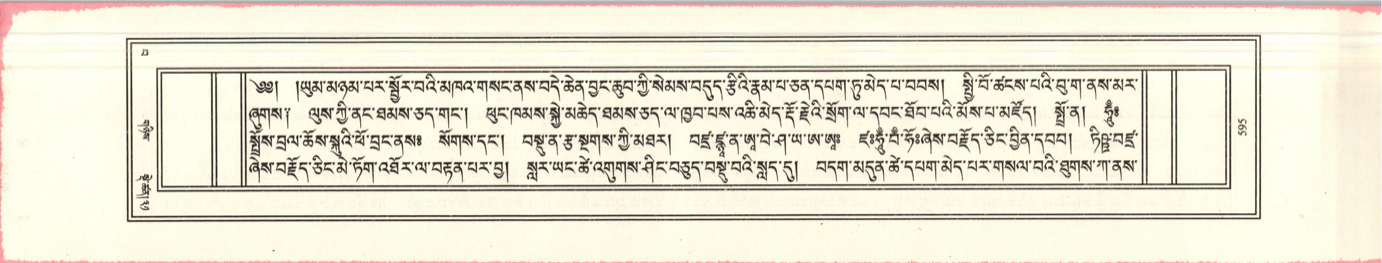 ༄༅། །ཡུམ་མཉམ་པར་སྦྱོར་བའི་མཁའ་གསང་ནས་བདེ་ཆེན་བྱང་ཆུབ་ཀྱི་སེམས་བདུད་རྩིའི་རྣམ་པ་ཅན་དཔག་ཏུ་མེད་པ་བབས། སྤྱི་བོ་ཚངས་པའི་བུ་ག་ནས་མར་
ཞུགས༑ ལུས་ཀྱི་ནང་ཐམས་ཅད་གང་། ཕུང་ཁམས་སྐྱེ་མཆེད་ཐམས་ཅད་ལ་ཁྱབ་པས་འཆི་མེད་རྡོ་རྗེའི་སྲོག་ལ་དབང་ཐོབ་པའི་མོས་པ་མཛོད། སྤྲོ་ན། ཧཱུྃ༔
སྤྲོས་བྲལ་ཆོས་སྐུའི་ཕོ་བྲང་ནས༔ སོགས་དང་། བསྟུ་ན་རྩ་སྔགས་ཀྱི་མཐར། བཛྲ་ཛྙཱ་ན་ཨཱ་བེ་ཤ་ཡ་ཨ་ཨཱཿ ཛཿཧཱུྃ་བཾ་ཧོཿཞེས་བརྗོད་ཅིང་བྱིན་དབབ། ཏིཥྛ་བཛྲ་
ཞེས་བརྗོད་ཅིང་མེ་ཏོག་འཐོར་ལ་བརྟན་པར་བྱ། སླར་ཡང་ཚེ་འགུགས་ཤིང་བཅུད་བསྡུ་བའི་སླད་དུ། བདག་མདུན་ཚེ་དཔག་མེད་པར་གསལ་བའི་ཐུགས་ཀ་ནས་
595